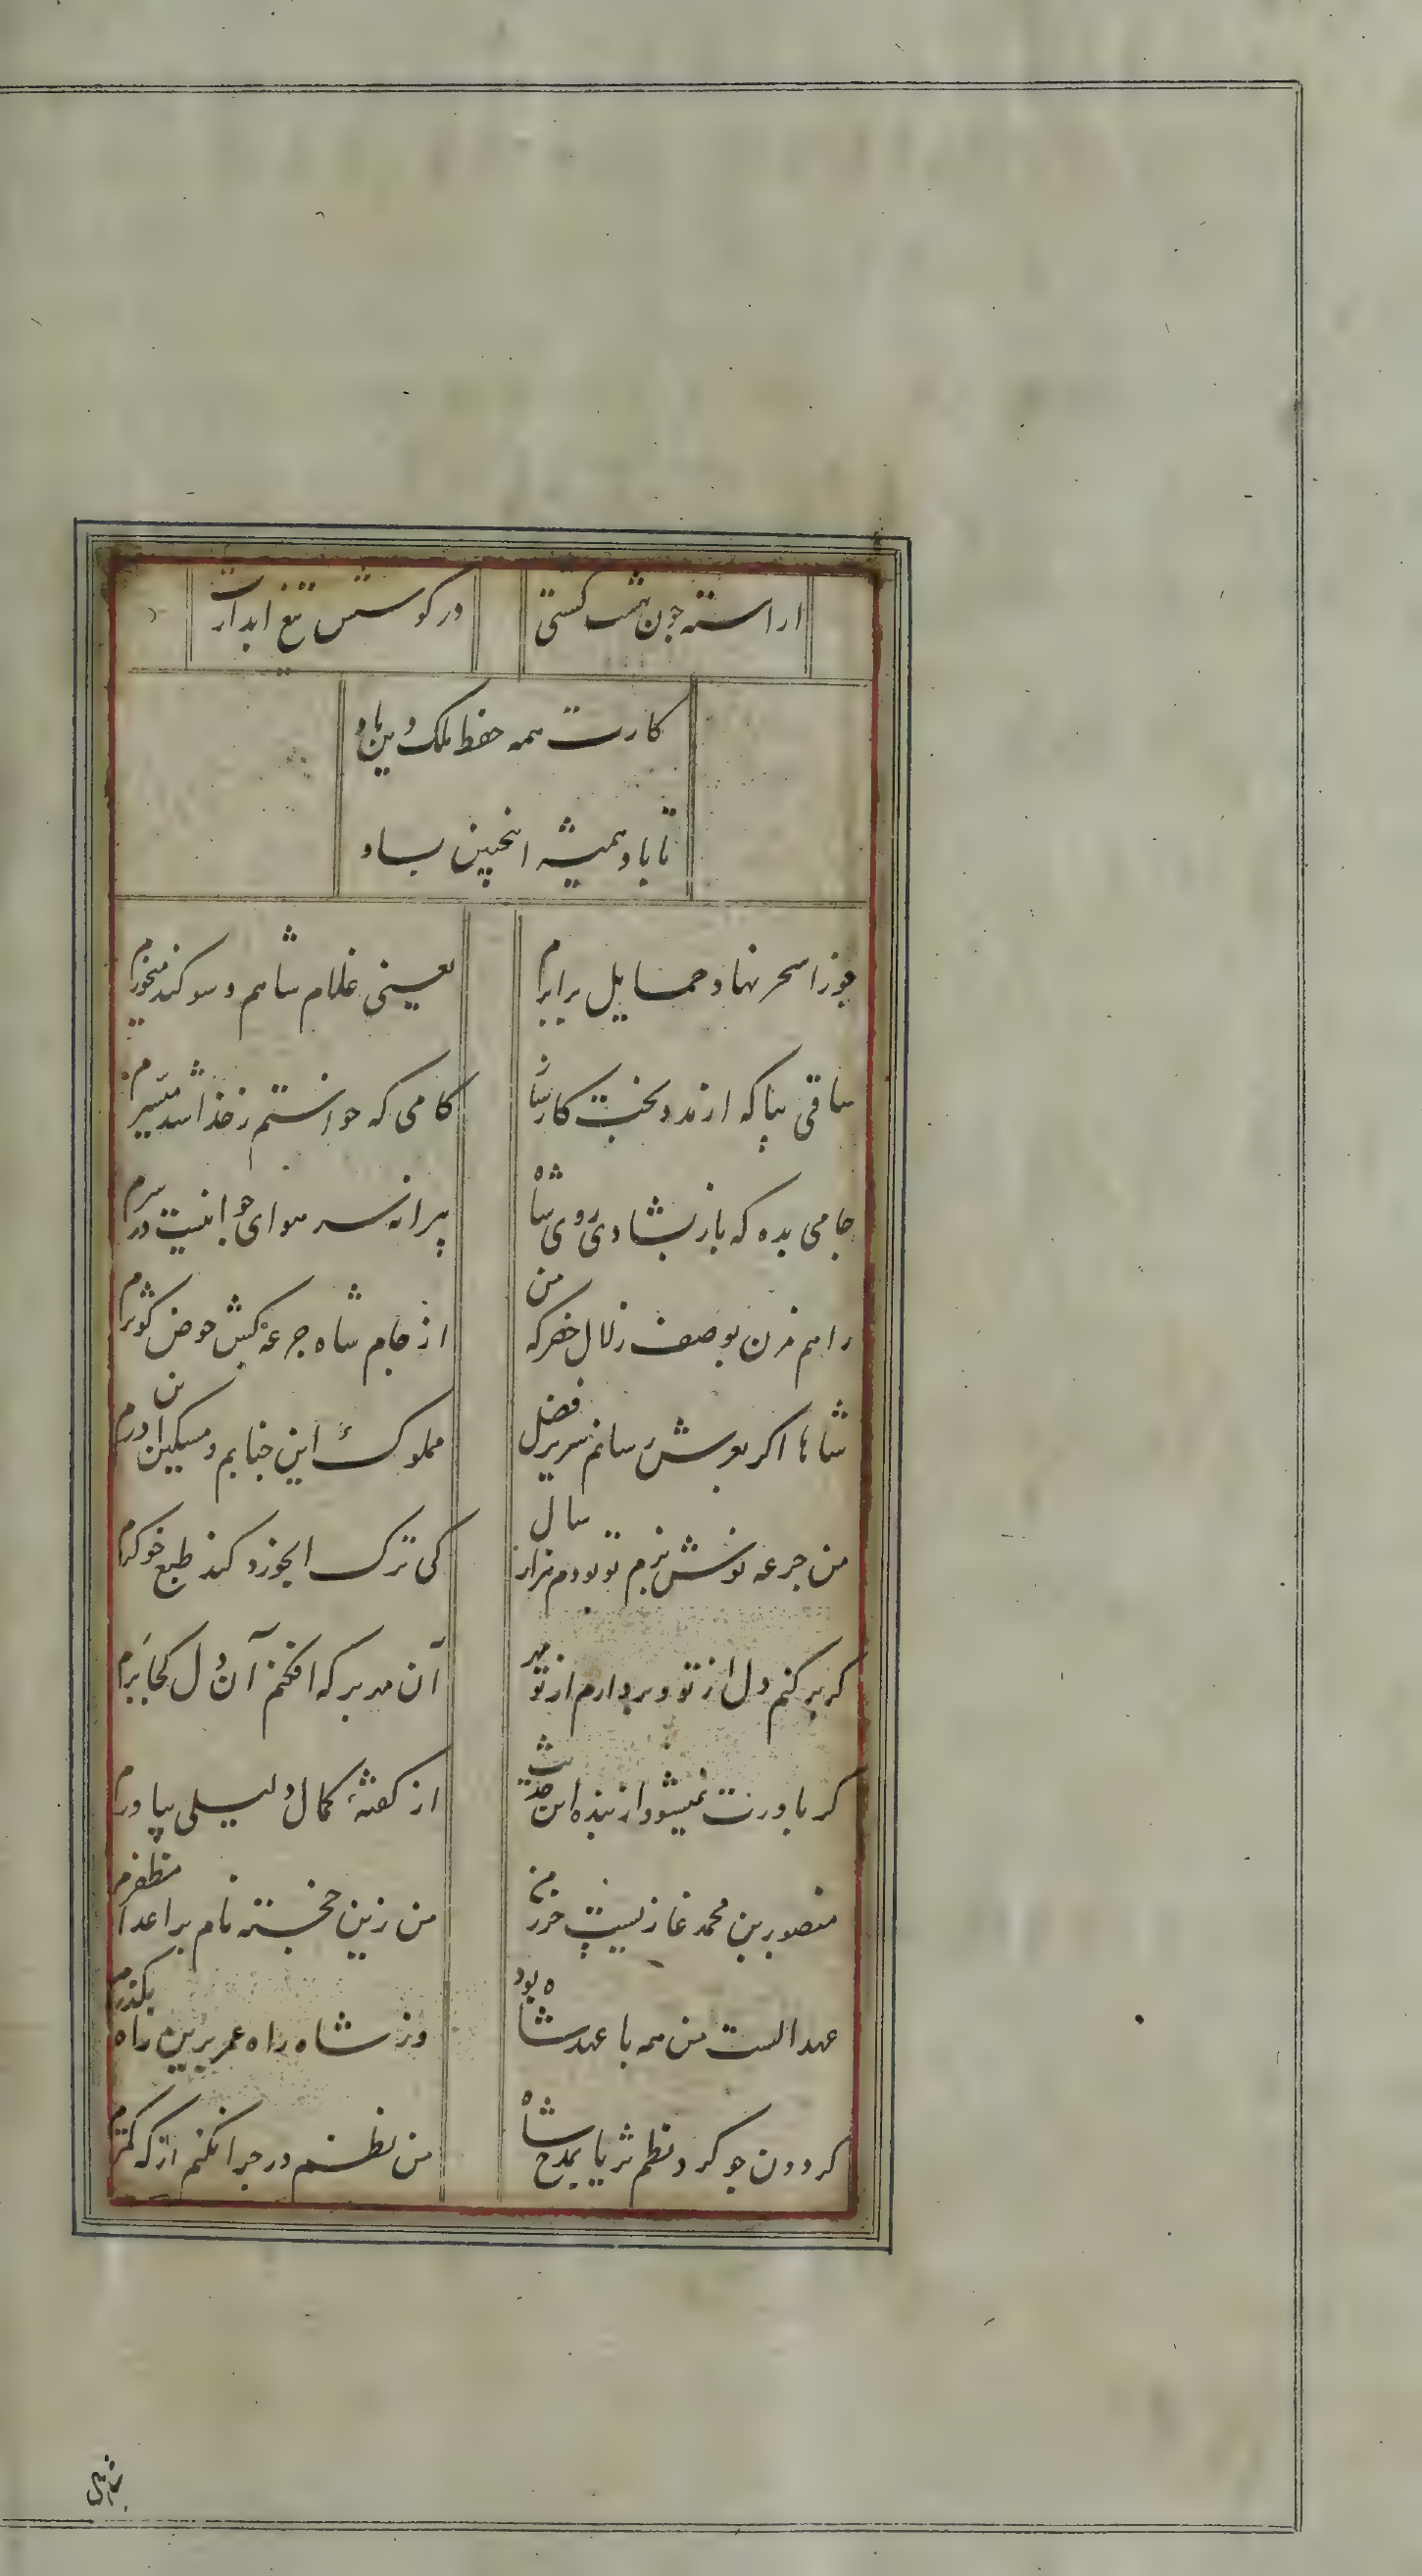 اراسته جون بهشت کستی درکوشش تیغ ابدارت
کارت همه حفظ ملک و دین باد
تا باد همیشه اینچنین باد
جوزا سحر نهاد حمایل برابرم یعنی غلام شاهم و سوکند میخورم
ساقی بیا که از مدد بخت کارساز کامی که خواستم زخذا شد میسرم
جامی بده که باز بشادی روی شاه پیرانه سر هوای جوانیست در سرم
راهم مزن بوصف زلال خضر که من از جام شاه جرعهٔ کش حوض کوثرم
شاها اکر بعرش رسانم سریر فضل مملوک این جنابم و مسکین این درم
من جرعه نوش بزم تو بودم هزار سال کی ترک ابخورد کند طبع خوکرم
کر بر کنم دل از تو و بردارم از تو مهر آن مهر بر که افکنم آن دل کجا برم
کر باورت نمیشود از بنده این حدیث از کفتهٔ کمال دلیلی بیاورم
منصور بن محمد غازیست حرز من من زین خجسته نام بر اعدا مظفرم
عهد الست من همه با عهد شاه بود وز شاه راه عمر برین راه بکذرم
کردون جو کرد نظم ثریا بمدح شاه من نظم در چرا نکنم از که کمترم